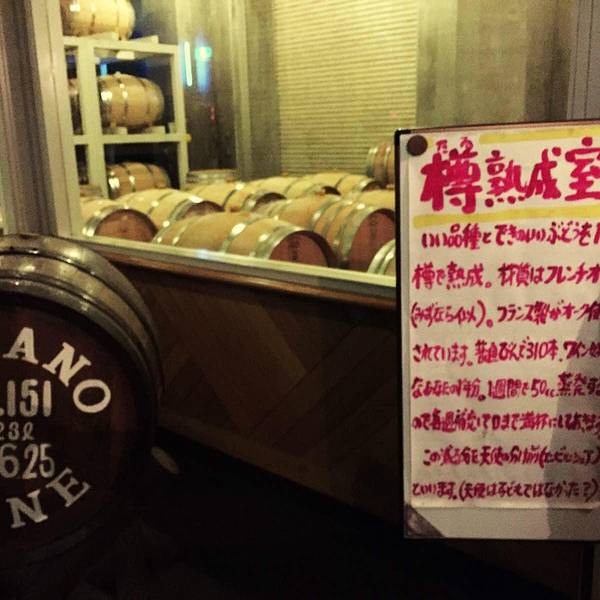 ANO
.151
23ℓ
625
NE
たる
樽熟成室
いい品種とできのいいぶどうを
樽で熟成。材質はフレンチオ
(みずならに似)。フランス製がオーク
されています。
310本。ワイン
1週間で50cc蒸発する
ので毎週補充して口まで満杯にして
この減る分を天使の分け前(エンゼルシェア)
といいます。(天使は子どもではなかった?)